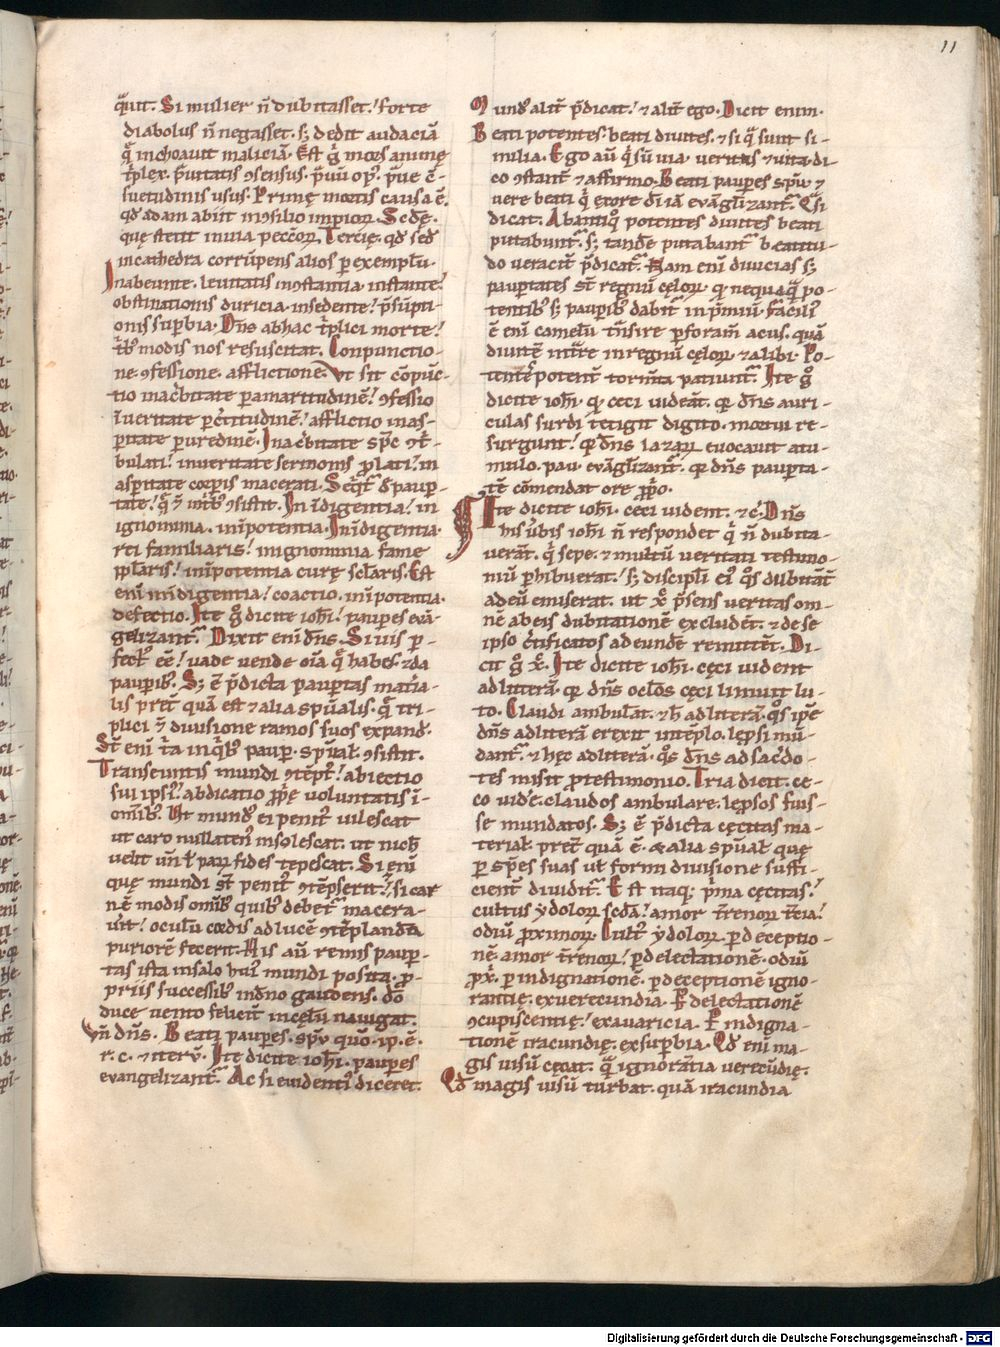 11
q̄uit. Si mulier n̄ dubitasset! forte
diabolus n̄ negasset. s; dedit audaciā
q̄ inchoauit maliciā. Est g̊ mors animę
t̃plex. p̄uitatis ꝯsensus. p̄uū op̄. p̄ue ꝯ̄-
suetudinis usus. Primę mortis causa ē.
qd̓ adam abiit in ꝯsilio impioꝝ. Scd̓ę.
quę stetit in uia pecc̄oꝝ. Tercię. qd̓ sed̓
in cathedra corrūpens alios ꝑ exemplū.
In abeunte. leuitatis inꝯstantia. in stante!
obstinationis duricia. in sedente! p̄sūpti-
onis suꝑbia. Dn̄s ab hac t̃plici morte!
t̃b; modis nos resuscitat. Conpunctio-
ne. ꝯfessione. afflictione. Vt sit cōpūc-
tio in ac̃bitate ꝑ amaritudinē! ꝯfessio
in ueritate ꝑ c̃titudinē! afflictio in as-
ꝑitate ꝑ uredinē. In ac̃bitate sp̄c ꝯt̃-
bulati! in ueritate sermonis ꝓlati! in
asꝑitate corꝑis macerati. Seq̃t̃ de pauꝑ-
tate! q̄ & in t̃b; ꝯsistit. In indigentia! in
ignominia. in īpotentia. In indigentia
rei familiaris! in ignominia fame
pp̄laris! in īpotentia curę sc̄laris. Est
eni in indigentia! coactio. in īpotentia.
defectio. Ite g̊ dicite ioh̄i! pauꝑes euā-
gelizant̃. Dixit eni dn̄s. Si uis ꝑ-
fect; eē! uade uende oīa q̄ habes ⁊ da
pauꝑib;. S; ē p̄dicta pauꝑtas mat̃ia-
lis pret̃ quā est & alia sp̄ualis. q̄ tri-
plici & diuisione ramos suos expand̃.
St̄ eni t̃a in q̇b; pauꝑ. sp̄ual̃. ꝯsistit.
Transeuntis mundi ꝯtēpt;! abiectio
sui ipsi;! abdicatio ꝓpę uoluntatis ī-
omīb;. Vt mund; ei penit; uilescat
ut caro nullaten; insolescat. ut nich̄
uelit un̄ l̓ paꝝ fides tepescat. Si eni
quę mundi st̄ penit; ꝯtēpserit! si car
nē modis omīb; quib; debet̃ macera-
u̓it! oculū cordis ad lucē ꝯtēplandā
puriorē fecerit. His au̓ remis pauꝑ-
tas ista in salo hui; mundi posita. ꝓ-
priis successib; in dn̄o gaudens. d̄o
duce uento felicit̃ in cęlū nauigat.
Vn̄ dn̄s. Beati pauꝑes. sp̄u quō. ip̄. ē.
r. c. & iterū. Ite dicite ioh̄i. pauꝑes
euangelizant̃. Ac si euident; diceret.
Mund; alit̃ p̄dicat! & alit̃ ego. Dicit enim.
Beati potentes. beati diuites. & si q̄ sunt si-
milia. Ego au̓ q̇ sū uia. ueritas & uita. di-
co ꝯstant̃ & affirmo. Beati pauꝑes sp̄u &
uere beati q̇ ex ore dī iā euāglizant̃. Qsi
dicat. Ab antiq̊ potentes diuites beati
putabunt̃. s; tandē putabant̃ beatitu-
do ueracit̃ p̄dicat̃. Nam eni diuicias s;
pauꝑtates st̄ regnū cęloꝝ. qꝛ nequaq̄ po-
tentib; s; pauꝑib; dabit̃ in p̄miū. facili;
ē eni camelū t̃nsire ꝑ foram̄ acus. quā
diuitē int̃re in regnū cęloꝝ. & alibi. Po-
tent̃ potent̃ torm̃ta patiunt̃. Ite g̊
dicite ioh̄i. qꝛ ceci uideāt. qꝛ dn̄s auri-
culas surdi tetigit digito. mortui re-
surgunt! qꝛ dn̄s lazaꝝ euocauit a tu-
mulo. pau. euāglizant̃. qꝛ dn̄s pauꝑta-
tē cōmendat ore ꝓp̊o.
Ite dicite ioh̄i. ceci uident. & c̃. Dn̄s
his u̓bis ioh̄i n̄ respondet q̇ n̄ dubita-
uerat. q̇ sepe. & multū ueritati testimo-
niū ꝑhibuerat! s; discipl̄i ei; q̊s dubitāt̃
ad eū emiserat. ut xp̄c p̄sens ueritas om-
nē ab eis dubitationē excludet̃. & de se
ipso c̃tificatos ad eundē remittet̃. Di-
cit g̊ xp̄c. Ite dicite ioh̄i. cęci uident
ad litterā. qꝛ dn̄s ocl̄os cęci liniuit lu-
to. Claudi ambulāt. & h̄ ad literā. q̊s ip̄e
dn̄s ad literā erexit in tēplo. lepsi mū-
dant̃. & hęc ad literā. q̊s dn̄s ad sac̃do-
tes misit ꝓ testimonio. Tria dicit. ce-
co uid̓e. claudos ambulare. lepsos fuis-
se mundatos. S; ē p̄dicta cęcitas ma-
terial̃. pret̃ quā ē. & alia sp̄ual̃ quę
ꝑ sp̄es suas ut̃ form̃ diuisione suffi-
cient̃ diuidit̃. Est itaq; p̃ma cęcitas!
cultus ydoloꝝ. scd̓a! amor t̃renoꝝ. t̃cia!
odiū ꝓximoꝝ. Cult; ydoloꝝ. ꝑ deceptio-
nē. amor t̃renoꝝ! ꝑ delectationē. odiū
ꝓx̄. ꝑ indignationē. ꝑ deceptionē igno-
rantię. ex uerecundia. Ꝑ delectationē
ꝯcupiscentię! ex auaricia. Ꝑ indigna-
tionē iracundię. ex suꝑbia. Qd̓ eni ma-
gis uisū cęcat. q̄ ignorātia uerecūdię.
Qd̓ magis uisū turbat. quā iracundia
Digitalisierung gefördert durch die Deutsche Forschungsgemeinschaft - DFG